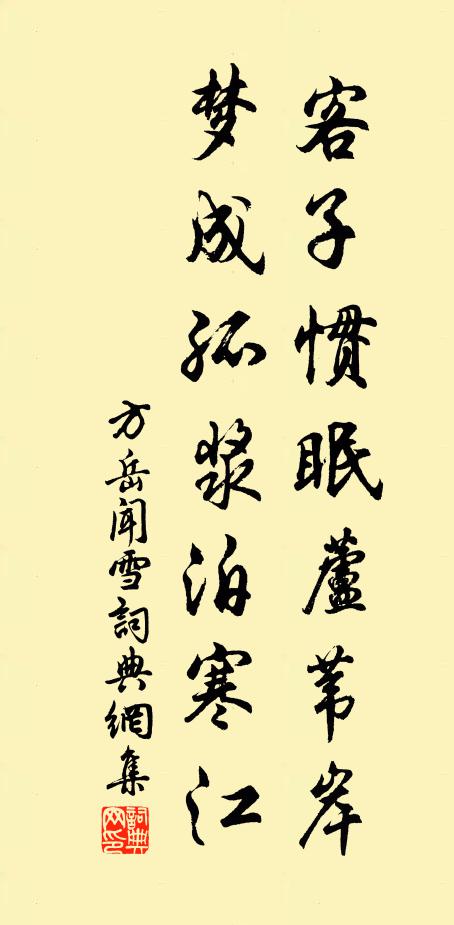 客子慣眠蘆苇岸
梦成孤浆泊寒江
方岳闻雪詞典網集
詞典网印